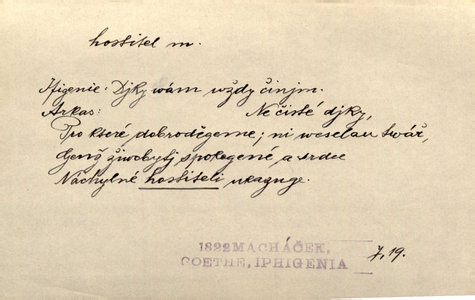 hostitel m.
Ifigenie: Djky wám wždy činjm.
Arkas: Ne čisté djky,
Pro které dobroděgeme; ni weselau twář,
Genž žiwobytj spokogené, a srdce
Náchylné hostiteli ukazuge.
1822 MACHÁČEK,
GOETHE, IPHIGENIA
7, 19.